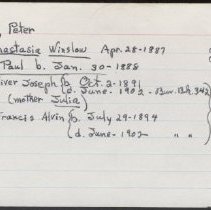 , Peter
nastasia Winslow Apr. 28-1887
Paul b. Jan. 30-1888
iver Joseph b. Oct. 2-1891
d. June. 1902 - Bur. Bk. 342
(mother Julia)
Francis Alvin b. July 29-1894
d. June-1902 " "